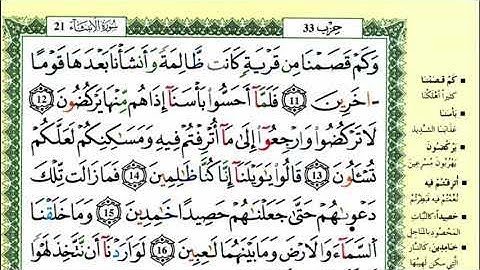 21 سُورَةُ الأَنبِيَاء
حِزْب 33
وَكَمْ قَصَمْنَا مِن قَرْيَةٍ كَانَت ظَّالِمَةً وَأَنشَأْنَا بَعْدَهَا قَوْمًا
ـاخَرِينَ 11 فَلَمَّا أَحَسُّوا بَأْسَنَا إِذَا هُم مِّنْهَا يَرْكُضُونَ 12
لَا تَرْكُضُوا وَارْجِعُوا إِلَى مَا أُتْرِفْتُمْ فِيهِ وَمَسَاكِنِكُمْ لَعَلَّكُمْ
تُسْـَٔلُونَ 13 قَالُوا يَاوَيْلَنَا إِنَّا كُنَّا ظَالِمِينَ 14 فَمَا زَالَت تِّلْكَ
دَعْوَاهُمْ حَتَّى جَعَلْنَاهُمْ حَصِيدًا خَامِدِينَ 15 وَمَا خَلَقْنَا
السَّمَاءَ وَالأَرْضَ وَمَا بَيْنَهُمَا لَاعِبِينَ 16 لَوْ أَرَدْنَا أَن نَّتَّخِذَ لَهْوًا
كَمْ قَصَمْنَا
كثيراً أهلكنا
بَأْسَنَا
عذابنا الشديد
يَرْكُضُونَ
يهربون مسرعين
أُتْرِفْتُمْ فِيهِ
حَصِيدًا: كالنبات
المحصود بالمناجل
خَامِدِينَ: كالنار
التي سكن لهيبها